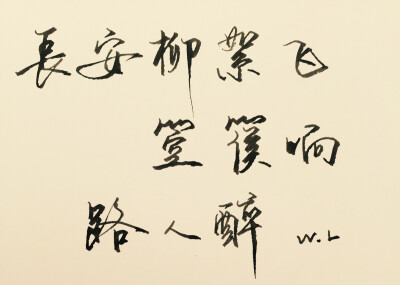 長安柳絮飞
箜篌响
路人醉 W.L